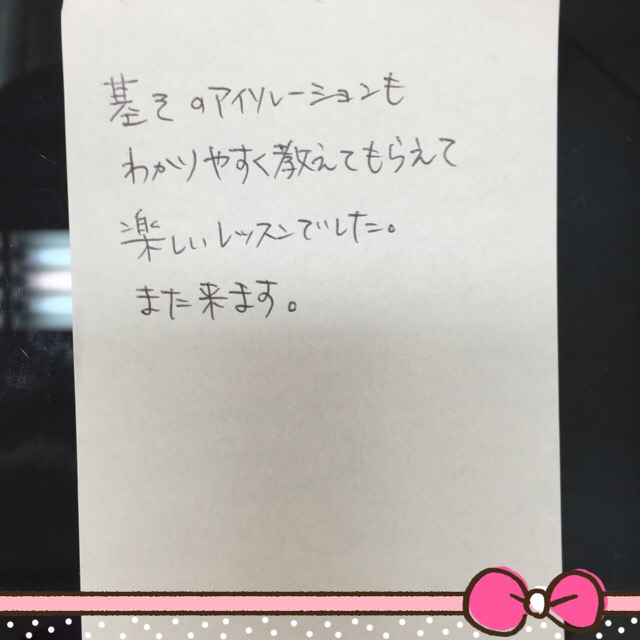 基そのアイソレーションも
わかりやすく教えてもらえて
楽しいレッスンでした。
また来ます。